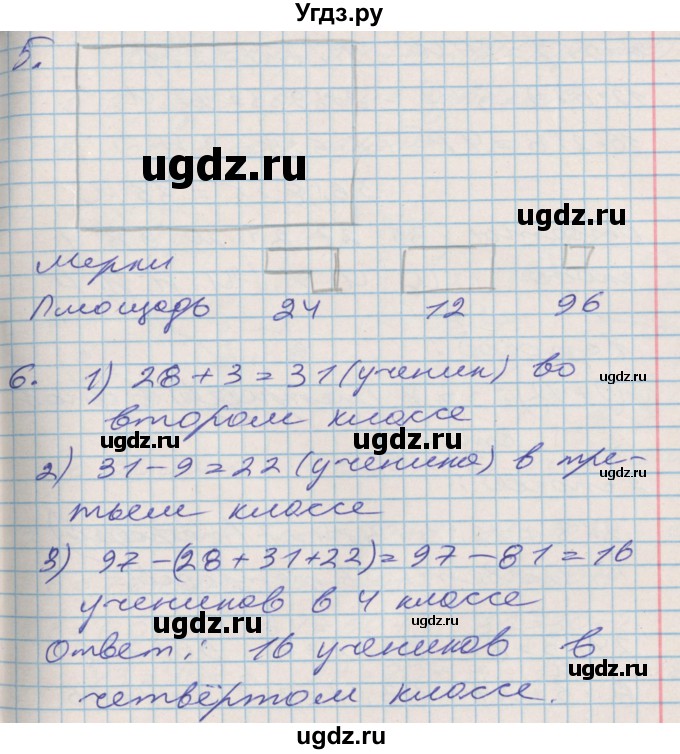 Угдз.ру
5.
ugdz.ru
ugdz.ru
Мерки
Площадь 24 12 96
6. 1) 28 + 3 = 31 (ученик) во
ugdz.ru
втором классе
ugdz.ru
ugdz.ru
2) 31 - 9 = 22 (ученика) в тре-
ugdz.ru
тьем классе
3) 97 - (28 + 31 + 22) = 97 - 81 = 16
учеников в 4 классе
ugdz.ru
ugdz.ru
Ответ: 16 учеников в
ugdz.ru
четвёртом классе.
ugdz.ru
ugdz.ru